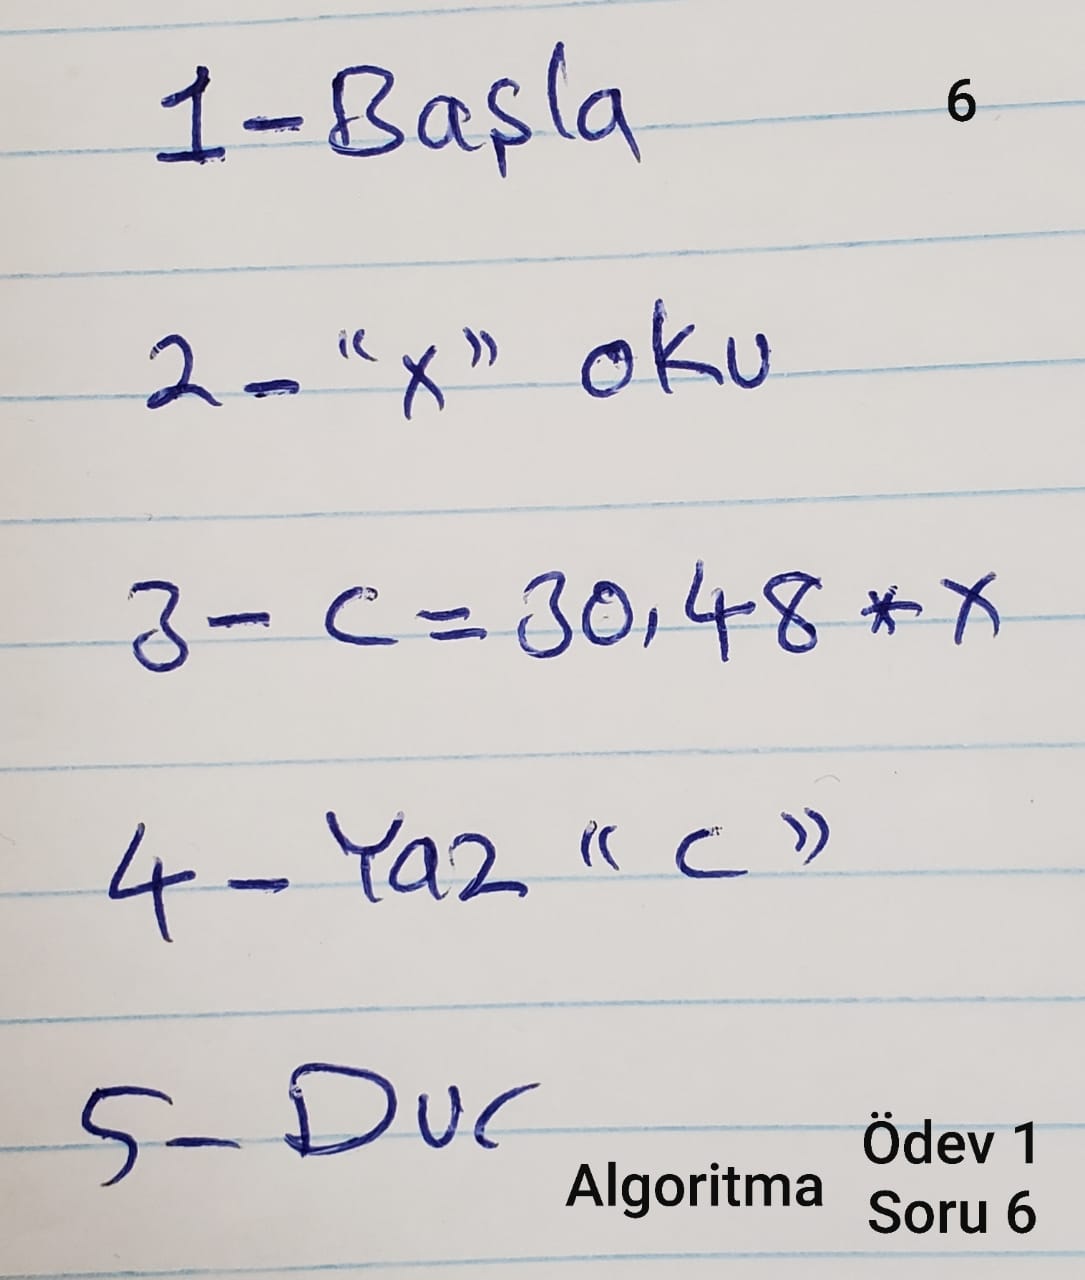 1-Başla
6
2-"x" oku
3-c=30,48*x
4-Yaz "c"
5-Dur
Algoritma
Ödev 1
Soru 6